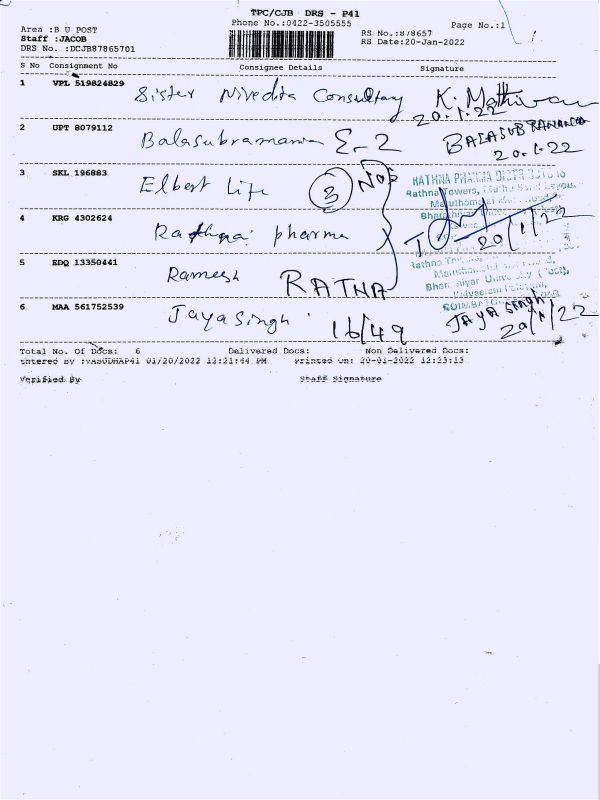 TPC/CJB DRS - P41
Area :B U POST
Phone No.:0422-3505555
Page No.:1
Staff :JACOB
RS No.:878657
DRS No. :DCJB87865701
RS Date:20-Jan-2022
S No Consignment No Consignee Details Signature
1 VPL 519824829 Sister Nivedita Consultary K. Mathivan
20.1.22
2 UPT 8079112 Balasubramania E-2 BALASUBRAMANIA
20.1.22
3 SKL 196883 Elbert Life 3 NOS
RATHNA PHARMA
Rathna Towers,
4 KRG 4302624 Rathna pharma
20/1/22
5 EDQ 13350441 Ramesh RATNA
6 MAA 561752539 Jayasingh 16/49 JAYA SINGH
20/1/22
Total No. Of Docs: 6 Delivered Docs: Non Delivered Docs:
Entered By :VASUDHAP41 01/20/2022 12:21:44 PM Printed On: 20-01-2022 12:23:13
Verified By Staff Signature